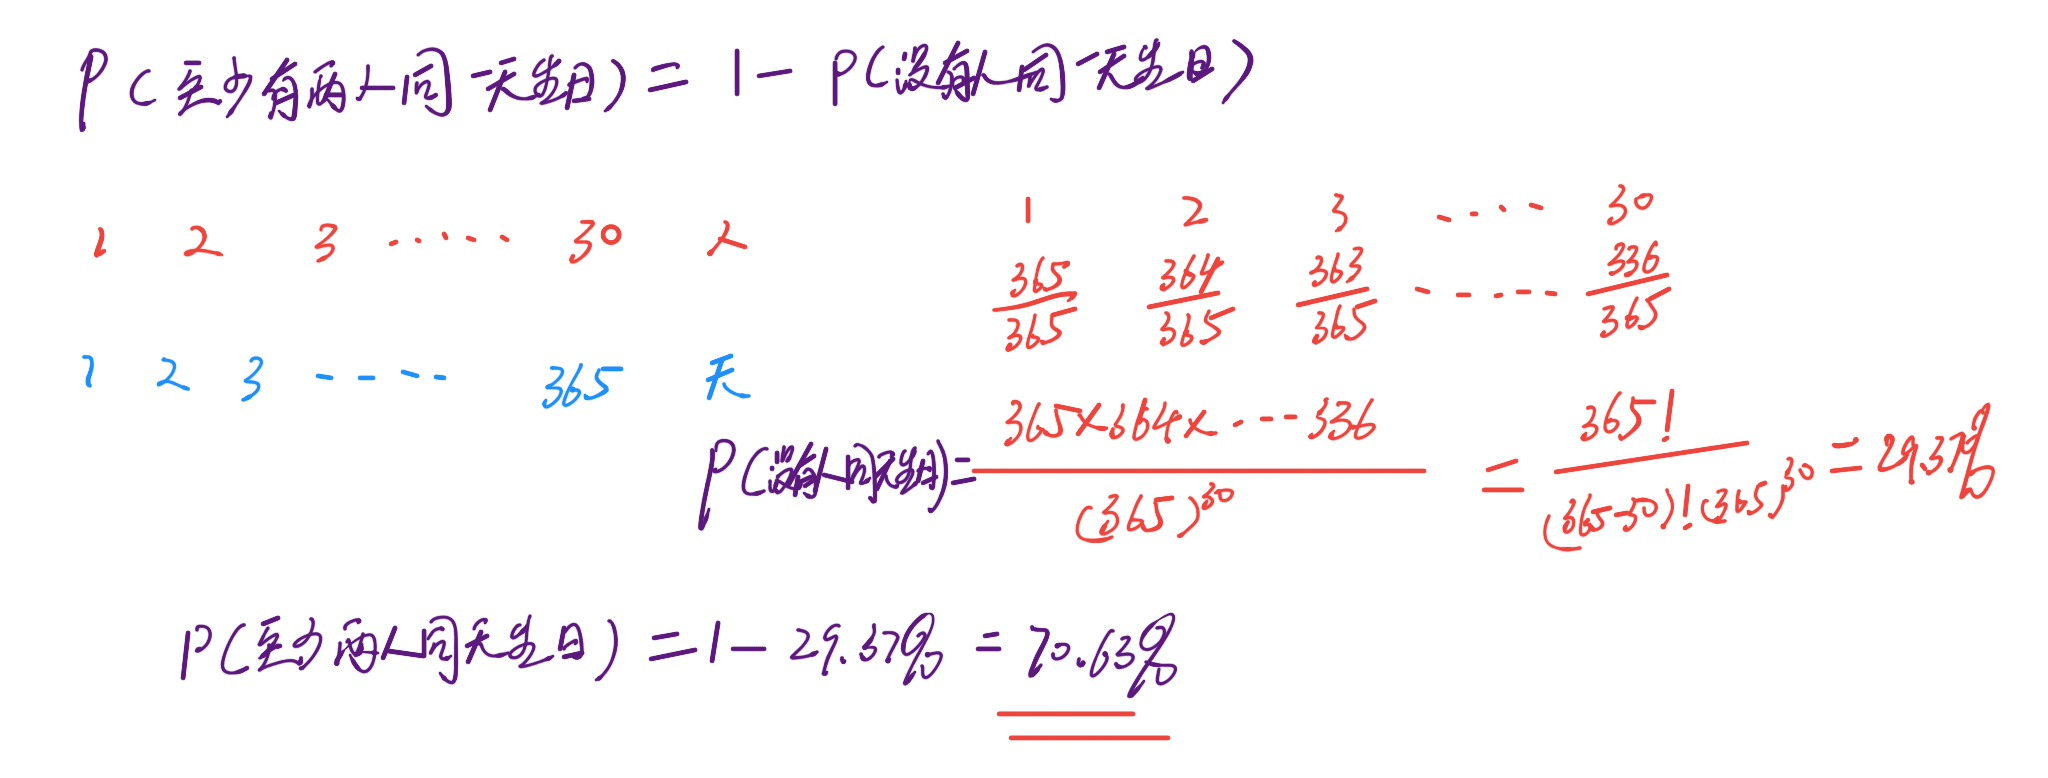 P(至少有两人同一天生日) = 1 - P(没有人同一天生日)
1 2 3 ····· 30 人
1 2 3 ····· 30
365/365 364/365 363/365 ····· 336/365
1 2 3 ---- 365 天
P(没有人同天生日) = 365×364×···336 / (365)^30 = 365! / (365-30)! (365)^30 = 29.37%
P(至少两人同天生日) = 1 - 29.37% = 70.63%